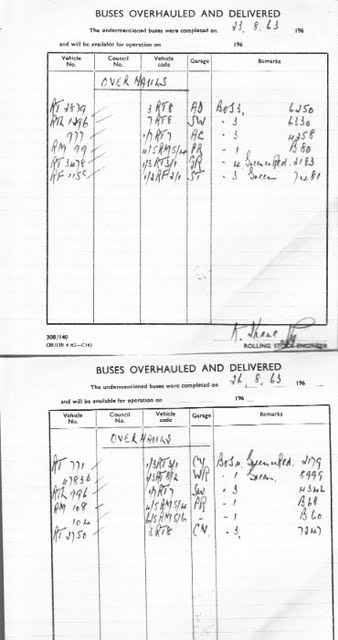 BUSES OVERHAULED AND DELIVERED
The undermentioned buses were completed on 23.8.63 196
and will be available for operation on 196
Vehicle No. Council No. Vehicle code Garage Remarks
OVERHAULS
RT 2879 3 RT8 AD BoS3, 6250
RTL 1296 7 RT8 SW - 3 6330
977 1/7 RT7 AC - 3 4258
RM 99 4/5 RM5/4 PR - 1 B80
RT 3478 1/3 RT3/1 GR - 4 Green Red. 2183
RF 1155 1/2 RF2/1 ST - 3 Green 7481
308/140
ROLLING STOCK ENGINEER
BUSES OVERHAULED AND DELIVERED
The undermentioned buses were completed on 26.8.63 196
and will be available for operation on 196
Vehicle No. Council No. Vehicle code Garage Remarks
OVERHAULS
RT 771 1/3 RT3/1 CY BoS4 Green Red. 2179
4783 WR - 1 Green 5999
RTL 996 1/7 RT7 SW - 3 4342
RM 108 4/5 RM5/4 PR - 1 B68
104 6/5 RM5/6 - - 1 B60
RT 2750 3 RT8 CN - 3, 7347